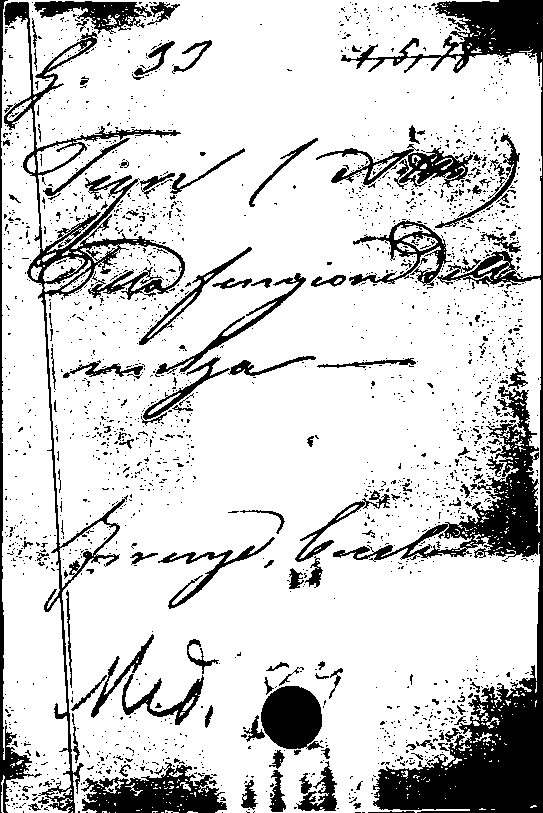 G. 33 1,5,78
Tigri (. Atto)
Della funzione della
milza —
Firenze,
Med.